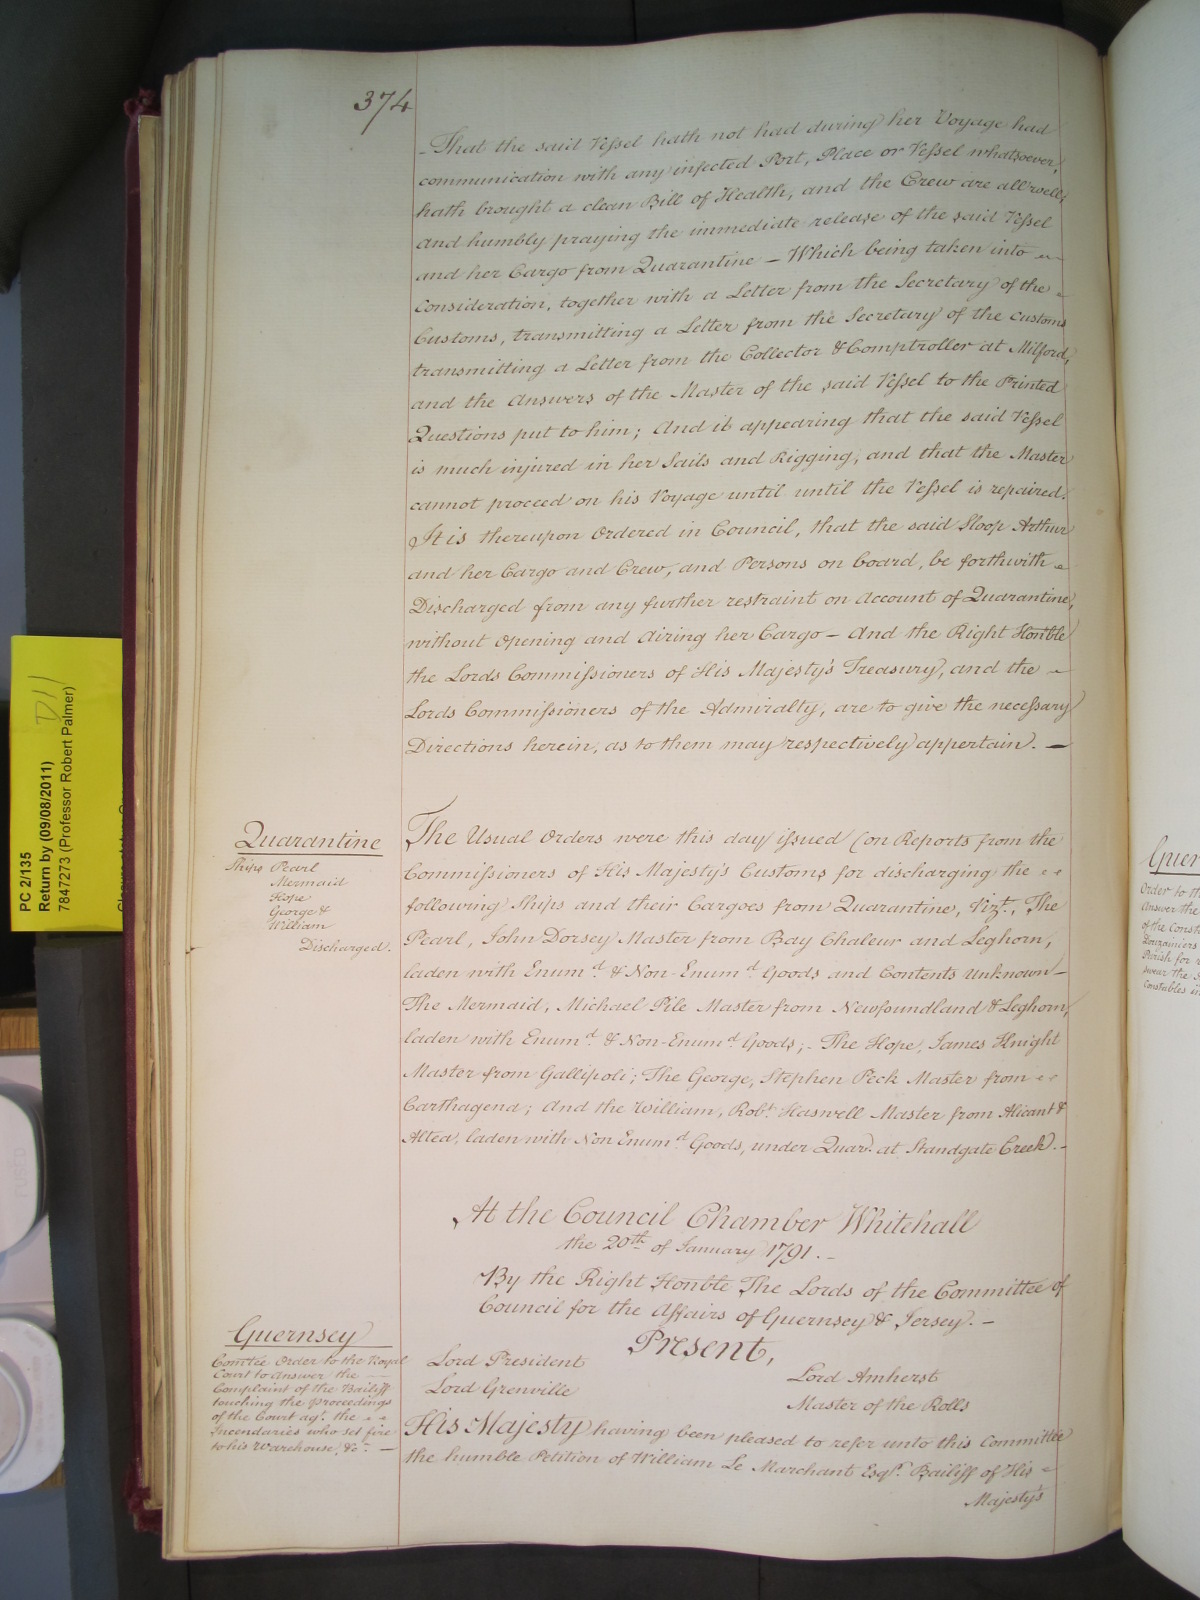 374
- That the said Vessel hath not had during her Voyage had
communication with any infected Port, Place or Vessel whatsoever,
hath brought a clean Bill of Health, and the Crew are all well,
and humbly praying the immediate release of the said Vessel
and her Cargo from Quarantine — Which being taken into
Consideration, together with a Letter from the Secretary of the
Customs, transmitting a Letter from the Secretary of the Customs
transmitting a Letter from the Collector & Comptroller at Milford,
and the Answers of the Master of the said Vessel to the Printed
Questions put to him; And it appearing that the said Vessel
is much injured in her Sails and Rigging, and that the Master
cannot proceed on his Voyage until until the Vessel is repaired.
It is thereupon Ordered in Council, that the said Sloop Arthur
and her Cargo and Crew, and Persons on board, be forthwith
Discharged from any further restraint on Account of Quarantine,
without Opening and Airing her Cargo — And the Right Honble
the Lords Commissioners of His Majesty's Treasury, and the
Lords Commissioners of the Admiralty, are to give the necessary
Directions herein, as to them may respectively appertain. —
Quarantine
Ships Pearl
Mermaid
Hope
George &
William
Discharged.
The Usual Orders were this day issued (on Reports from the
Commissioners of His Majesty's Customs for discharging the
following Ships and their Cargoes from Quarantine, Vizt., The
Pearl, John Dorsey Master from Bay Chaleur and Leghorn,
laden with Enumd. & Non-Enumd. Goods and Contents Unknown —
The Mermaid, Michael Pile Master from Newfoundland & Leghorn,
laden with Enumd. & Non-Enumd. Goods; - The Hope, James Knight
Master from Gallipoli; The George, Stephen Peck Master from
Carthagena; And the William, Robt. Haswell Master from Alicant &
Altea, laden with Non Enumd. Goods, under Quar. at Standgate Creek. -
At the Council Chamber Whitehall
the 20th of January 1791. -
By the Right Honble The Lords of the Committee of
Council for the Affairs of Guernsey & Jersey. —
Present,
Lord President
Lord Grenville
Lord Amherst
Master of the Rolls
Guernsey
Comtee Order to the Royal
Court to Answer the
Complaint of the Bailiff
touching the Proceedings
of the Court agt. the
Incendaries who set fire
to his Warehouse, &c. —
His Majesty having been pleased to refer unto this Committee
the humble Petition of William Le Marchant Esqr. Bailiff of His
Majesty's
PC 2/135
Return by (09/08/2011)
7847273 (Professor Robert Palmer)
D11
Guer
Order to th
Answer the
of the Const
Douzainiers
Parish for
swear the
Constables in